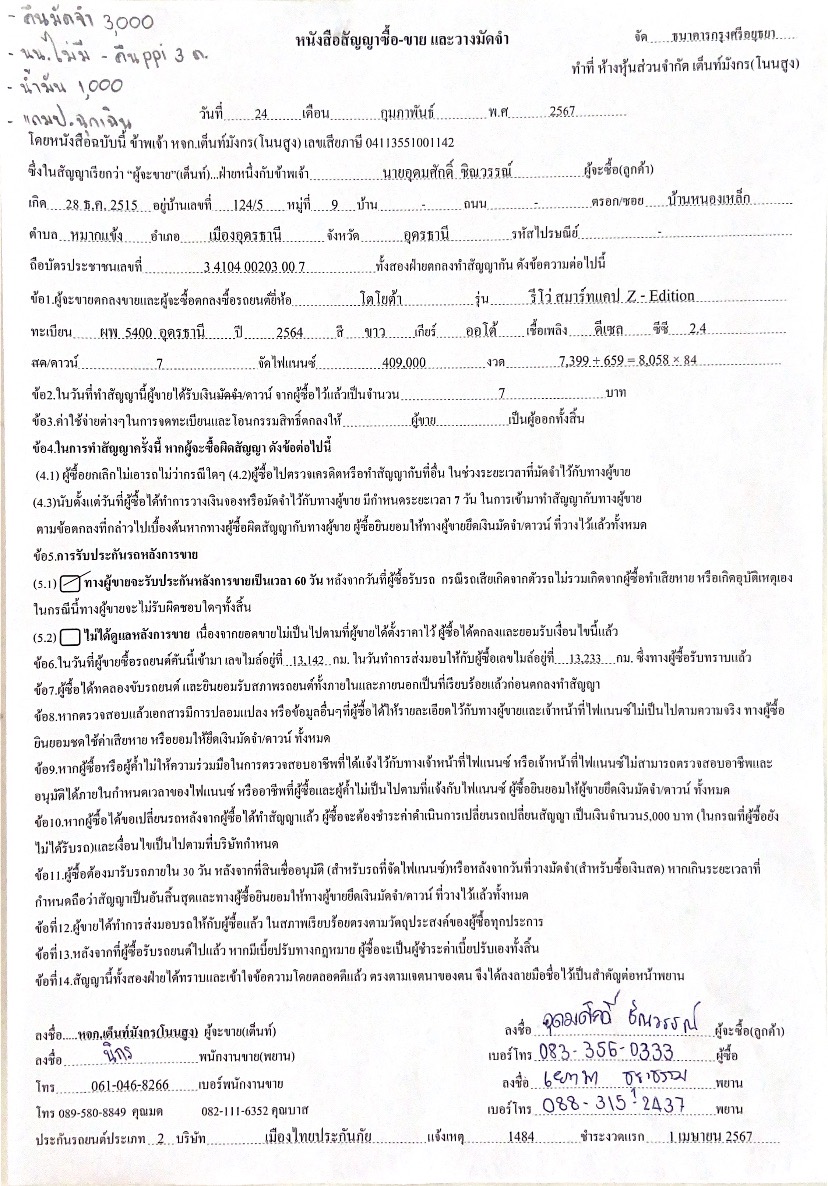 - คืนมัดจำ 3,000
- นน.ไม่มี - คืนppi 3 ด.
- น้ำมัน 1,000
- แถมป.ฉุกเฉิน
หนังสือสัญญาซื้อ-ขาย และวางมัดจำ
จัด ธนาคารกรุงศรีอยุธยา
ทำที่ ห้างหุ้นส่วนจำกัด เต็นท์มังกร(โนนสูง)
วันที่ 24 เดือน กุมภาพันธ์ พ.ศ 2567
โดยหนังสือฉบับนี้ ข้าพเจ้า หจก.เต็นท์มังกร(โนนสูง) เลขเสียภาษี 04113551001142
ซึ่งในสัญญาเรียกว่า "ผู้จะขาย"(เต็นท์)...ฝ่ายหนึ่งกับข้าพเจ้า นายอุดมศักดิ์ ชิณวรรณ์ ผู้จะซื้อ(ลูกค้า)
เกิด 28 ธ.ค. 2515 อยู่บ้านเลขที่ 124/5 หมู่ที่ 9 บ้าน - ถนน - ตรอก/ซอย บ้านหนองเหล็ก
ตำบล หมากแข้ง อำเภอ เมืองอุดรธานี จังหวัด อุดรธานี รหัสไปรษณีย์ -
ถือบัตรประชาชนเลขที่ 3 4104 00203 00 7 ทั้งสองฝ่ายตกลงทำสัญญากัน ดังข้อความต่อไปนี้
ข้อ1.ผู้จะขายตกลงขายและผู้จะซื้อตกลงซื้อรถยนต์ยี่ห้อ โตโยต้า รุ่น รีโว่ สมาร์ทแคป Z - Edition
ทะเบียน ผพ 5400 อุดรธานี ปี 2564 สี ขาว เกียร์ ออโต้ เชื้อเพลิง ดีเซล ซีซี 2.4
สด/ดาวน์ 7 จัดไฟแนนซ์ 409,000 งวด 7,399 + 659 = 8,058 × 84
ข้อ2.ในวันที่ทำสัญญานี้ผู้ขายได้รับเงินมัดจำ/ดาวน์ จากผู้ซื้อไว้แล้วเป็นจำนวน 7 บาท
ข้อ3.ค่าใช้จ่ายต่างๆในการจดทะเบียนและโอนกรรมสิทธิ์ตกลงให้ ผู้ขาย เป็นผู้ออกทั้งสิ้น
ข้อ4.ในการทำสัญญาครั้งนี้ หากผู้จะซื้อผิดสัญญา ดังข้อต่อไปนี้
(4.1) ผู้ซื้อยกเลิกไม่เอารถไม่ว่ากรณีใดๆ (4.2)ผู้ซื้อไปตรวจเครดิตหรือทำสัญญากับที่อื่น ในช่วงระยะเวลาที่มัดจำไว้กับทางผู้ขาย
(4.3)นับตั้งแต่วันที่ผู้ซื้อได้ทำการวางเงินจองหรือมัดจำไว้กับทางผู้ขาย มีกำหนดระยะเวลา 7 วัน ในการเข้ามาทำสัญญากับทางผู้ขาย
ตามข้อตกลงที่กล่าวไปเบื้องต้นหากทางผู้ซื้อผิดสัญญากับทางผู้ขาย ผู้ซื้อยินยอมให้ทางผู้ขายยึดเงินมัดจำ/ดาวน์ ที่วางไว้แล้วทั้งหมด
ข้อ5.การรับประกันรถหลังการขาย
(5.1) ทางผู้ขายจะรับประกันหลังการขายเป็นเวลา 60 วัน หลังจากวันที่ผู้ซื้อรับรถ กรณีรถเสียเกิดจากตัวรถไม่รวมเกิดจากผู้ซื้อทำเสียหาย หรือเกิดอุบัติเหตุเอง
ในกรณีนี้ทางผู้ขายจะไม่รับผิดชอบใดๆทั้งสิ้น
(5.2) ไม่ได้ดูแลหลังการขาย เนื่องจากยอดขายไม่เป็นไปตามที่ผู้ขายได้ตั้งราคาไว้ ผู้ซื้อได้ตกลงและยอมรับเงื่อนไขนี้แล้ว
ข้อ6.ในวันที่ผู้ขายซื้อรถยนต์คันนี้เข้ามา เลขไมล์อยู่ที่ 13,142 กม. ในวันทำการส่งมอบให้กับผู้ซื้อเลขไมล์อยู่ที่ 13,233 กม. ซึ่งทางผู้ซื้อรับทราบแล้ว
ข้อ7.ผู้ซื้อได้ทดลองขับรถยนต์ และยินยอมรับสภาพรถยนต์ทั้งภายในและภายนอกเป็นที่เรียบร้อยแล้วก่อนตกลงทำสัญญา
ข้อ8.หากตรวจสอบแล้วเอกสารมีการปลอมแปลง หรือข้อมูลอื่นๆที่ผู้ซื้อได้ให้รายละเอียดไว้กับทางผู้ขายและเจ้าหน้าที่ไฟแนนซ์ไม่เป็นไปตามความจริง ทางผู้ซื้อ
ยินยอมชดใช้ค่าเสียหาย หรือยอมให้ยึดเงินมัดจำ/ดาวน์ ทั้งหมด
ข้อ9.หากผู้ซื้อหรือผู้ค้ำไม่ให้ความร่วมมือในการตรวจสอบอาชีพที่ได้แจ้งไว้กับทางเจ้าหน้าที่ไฟแนนซ์ หรือเจ้าหน้าที่ไฟแนนซ์ไม่สามารถตรวจสอบอาชีพและ
อนุมัติได้ภายในกำหนดเวลาของไฟแนนซ์ หรืออาชีพที่ผู้ซื้อและผู้ค้ำไม่เป็นไปตามที่แจ้งกับไฟแนนซ์ ผู้ซื้อยินยอมให้ผู้ขายยึดเงินมัดจำ/ดาวน์ ทั้งหมด
ข้อ10.หากผู้ซื้อได้ขอเปลี่ยนรถหลังจากผู้ซื้อได้ทำสัญญาแล้ว ผู้ซื้อจะต้องชำระค่าดำเนินการเปลี่ยนรถเปลี่ยนสัญญา เป็นเงินจำนวน5,000 บาท (ในกรณที่ผู้ซื้อยัง
ไม่ได้รับรถ)และเงื่อนไขเป็นไปตามที่บริษัทกำหนด
ข้อ11.ผู้ซื้อต้องมารับรถภายใน 30 วัน หลังจากที่สินเชื่ออนุมัติ (สำหรับรถที่จัดไฟแนนซ์)หรือหลังจากวันที่วางมัดจำ(สำหรับซื้อเงินสด) หากเกินระยะเวลาที่
กำหนดถือว่าสัญญาเป็นอันสิ้นสุดและทางผู้ซื้อยินยอมให้ทางผู้ขายยึดเงินมัดจำ/ดาวน์ ที่วางไว้แล้วทั้งหมด
ข้อที่12.ผู้ขายได้ทำการส่งมอบรถให้กับผู้ซื้อแล้ว ในสภาพเรียบร้อยตรงตามวัตถุประสงค์ของผู้ซื้อทุกประการ
ข้อที่13.หลังจากที่ผู้ซื้อรับรถยนต์ไปแล้ว หากมีเบี้ยปรับทางกฎหมาย ผู้ซื้อจะเป็นผู้ชำระค่าเบี้ยปรับเองทั้งสิ้น
ข้อที่14.สัญญานี้ทั้งสองฝ่ายได้ทราบและเข้าใจข้อความโดยตลอดดีแล้ว ตรงตามเจตนาของตน จึงได้ลงลายมือชื่อไว้เป็นสำคัญต่อหน้าพยาน
ลงชื่อ.....หจก.เต็นท์มังกร(โนนสูง) ผู้จะขาย(เต็นท์) ลงชื่อ อุดมศักดิ์ ชิณวรรณ์ ผู้จะซื้อ(ลูกค้า)
ลงชื่อ นิกร พนักงานขาย(พยาน) เบอร์โทร 083-356-0333 ผู้ซื้อ
โทร 061-046-8266 เบอร์พนักงานขาย ลงชื่อ พยาน
โทร 089-580-8849 คุณมด 082-111-6352 คุณบาส เบอร์โทร 088-315-2437 พยาน
ประกันรถยนต์ประเภท 2 บริษัท เมืองไทยประกันภัย แจ้งเหตุ 1484 ชำระงวดแรก 1 เมษายน 2567